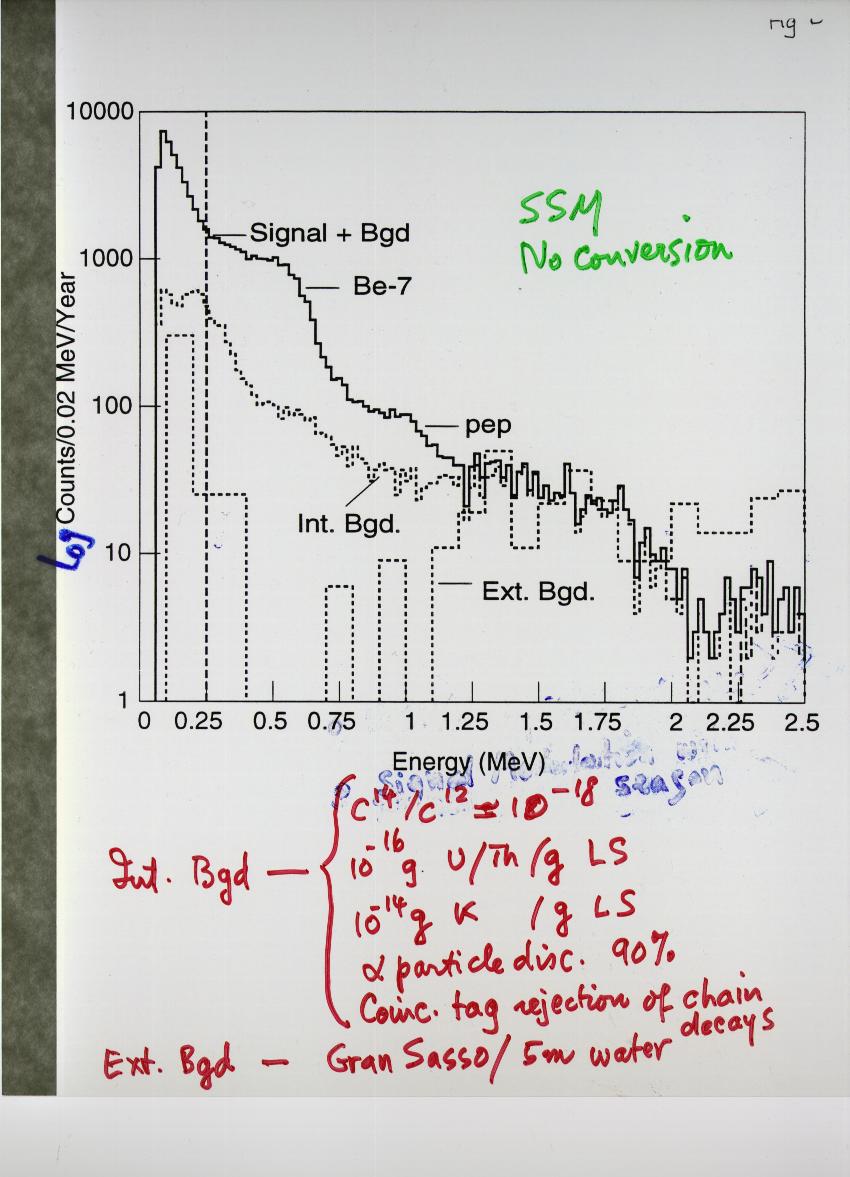 10000
SSM
Signal + Bgd
No Conversion
1000
Be-7
Log Counts/0.02 MeV/Year
100
pep
Int. Bgd.
10
Ext. Bgd.
1
0 0.25 0.5 0.75 1 1.25 1.5 1.75 2 2.25 2.5
Energy (MeV)
Signal Modulation
season
C14/C12 = 10-18
Int. Bgd — 10-16 g U/Th/g LS
10-14 g K /g LS
α particle disc. 90%
Coinc. tag rejection of chain
decays
Ext. Bgd — Gran Sasso/ 5m water